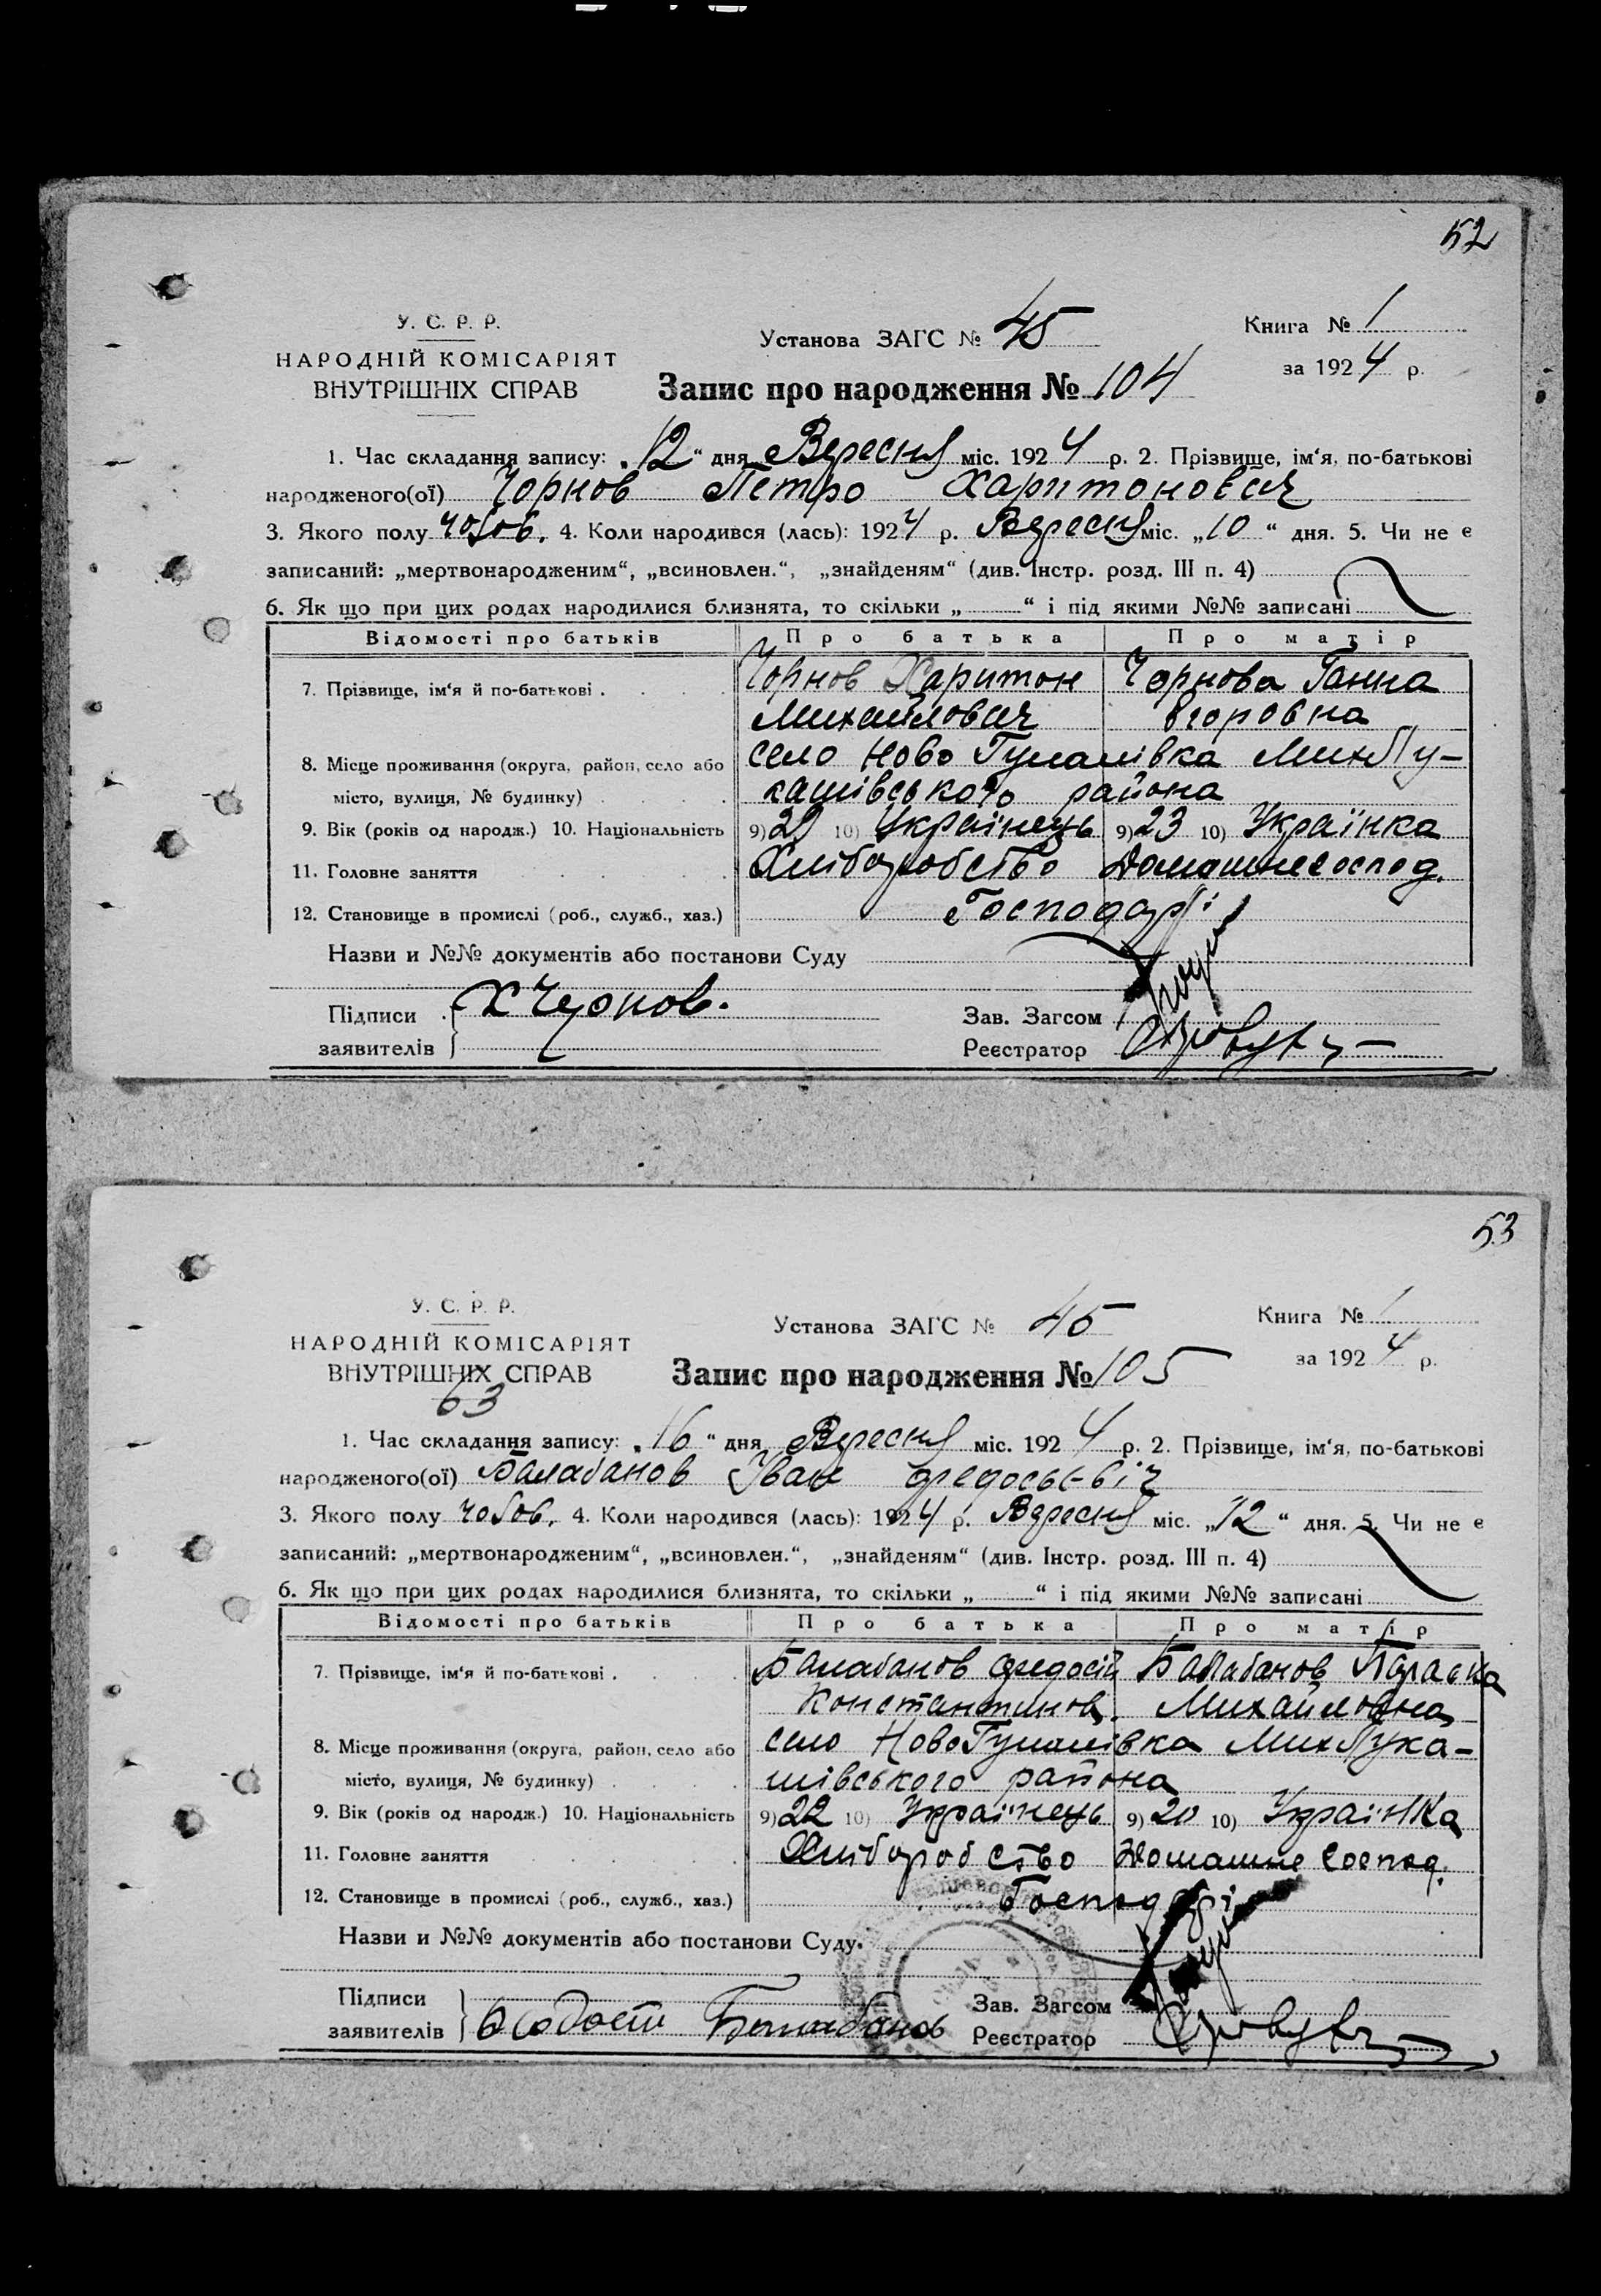 52
У. С. Р. Р.
НАРОДНІЙ КОМІСАРІЯТ
ВНУТРІШНІХ СПРАВ
Установа ЗАГС № 45
Книга № 1
за 1924 р.
Запис про народження № 104
1. Час складання запису: „12“ дня Вересня міс. 1924 р. 2. Прізвище, ім‘я, по-батькові
народженого(ої) Чорнов Петро Харитонович
3. Якого полу чолов. 4. Коли народився (лась): 1924 р. Вересня міс. „10“ дня. 5. Чи не є
записаний: „мертвонародженим“, „всиновлен.“, „знайденям“ (див. Інстр. розд. III п. 4)
6. Як що при цих родах народилися близнята, то скільки „ “ і під якими №№ записані
Відомості про батьків Про батька Про матір
7. Прізвище, ім‘я й по-батькові . Чорнов Харитон Чорнова Ганна
Михайлович Єгоровна
8. Місце проживання (округа, район, село або село Ново Гупалівка Мих Лу-
місто, вулиця, № будинку) кашівського района
9. Вік (років од народж.) 10. Національність 9) 29 10) Українець 9) 23 10) Українка
11. Головне заняття Хліборобство Домашнє господ.
12. Становище в промислі (роб., служб., хаз.) Господарі
Назви и №№ документів або постанови Суду
Підписи Х Чернов.
заявителів
Зав. Загсом
Реєстратор
53
У. С. Р. Р.
НАРОДНІЙ КОМІСАРІЯТ
ВНУТРІШНІХ СПРАВ
63
Установа ЗАГС № 45
Книга № 1
за 1924 р.
Запис про народження № 105
1. Час складання запису: „16“ дня Вересня міс. 1924 р. 2. Прізвище, ім‘я, по-батькові
народженого(ої) Балабанов Іван Федосьєвіч
3. Якого полу чолов. 4. Коли народився (лась): 1924 р. Вересня міс. „12“ дня. 5. Чи не є
записаний: „мертвонародженим“, „всиновлен.“, „знайденям“ (див. Інстр. розд. III п. 4)
6. Як що при цих родах народилися близнята, то скільки „ “ і під якими №№ записані
Відомості про батьків Про батька Про матір
7. Прізвище, ім‘я й по-батькові . Балабанов Федосій Балабанов Параска
Константинов. Михайловна
8. Місце проживання (округа, район, село або село Ново Гупалівка Мих Лука-
місто, вулиця, № будинку) шівського района
9. Вік (років од народж.) 10. Національність 9) 22 10) Українець 9) 20 10) Українка
11. Головне заняття Хліборобство Домашнє господ.
12. Становище в промислі (роб., служб., хаз.) Господарі
Назви и №№ документів або постанови Суду
Підписи
заявителів Балабанов
Зав. Загсом
Реєстратор